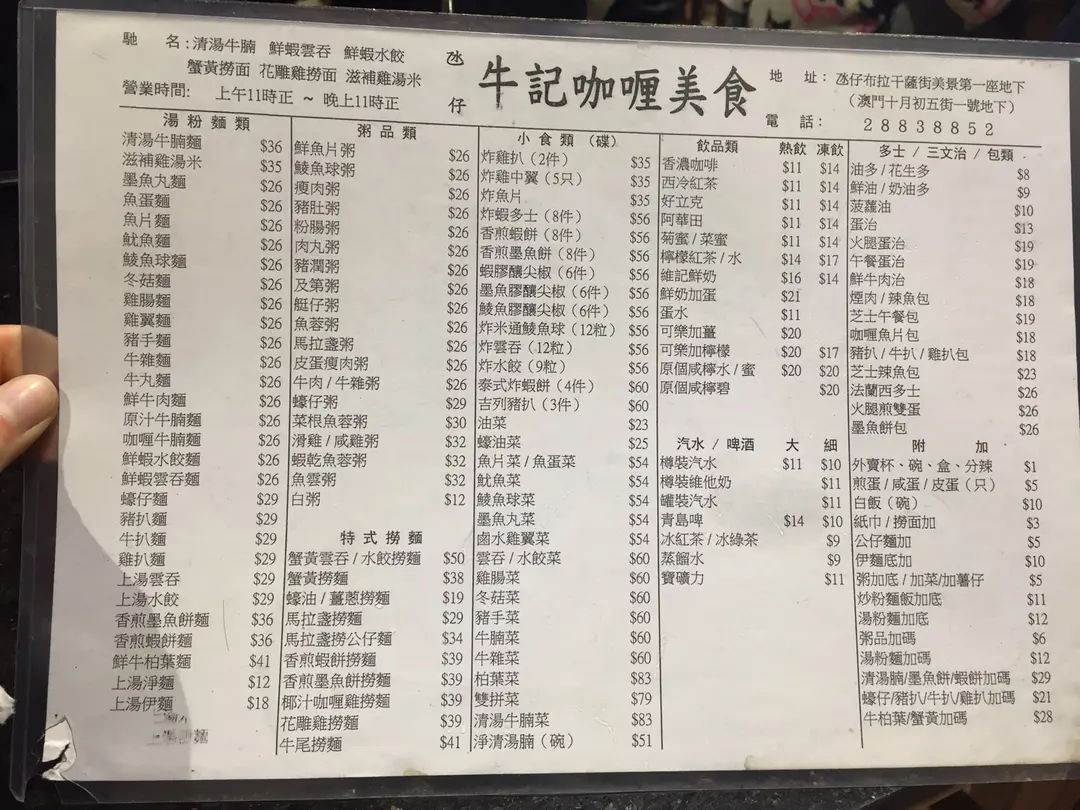 馳 名:清湯牛腩 鮮蝦雲吞 鮮蝦水餃
蟹黃撈面 花雕雞撈面 滋補雞湯米
營業時間: 上午11時正 ~ 晚上11時正
氹仔
牛記咖喱美食
地 址: 氹仔布拉干薩街美景第一座地下
(澳門十月初五街一號地下)
電 話: 28838852
湯粉麵類
清湯牛腩麵 $36
滋補雞湯米 $35
墨魚丸麵 $26
魚蛋麵 $26
魚片麵 $26
魷魚麵 $26
鯪魚球麵 $26
冬菇麵 $26
雞腸麵 $26
雞翼麵 $26
豬手麵 $26
牛雜麵 $26
牛丸麵 $26
鮮牛肉麵 $26
原汁牛腩麵 $26
咖喱牛腩麵 $26
鮮蝦水餃麵 $26
鮮蝦雲吞麵 $26
蠔仔麵 $29
豬扒麵 $29
牛扒麵 $29
雞扒麵 $29
上湯雲吞 $29
上湯水餃 $29
香煎墨魚餅麵 $36
香煎蝦餅麵 $36
鮮牛柏葉麵 $41
上湯淨麵 $12
上湯伊麵 $18
粥品類
鮮魚片粥 $26
鯪魚球粥 $26
瘦肉粥 $26
豬肚粥 $26
粉腸粥 $26
肉丸粥 $26
豬潤粥 $26
及第粥 $26
艇仔粥 $26
魚蓉粥 $26
馬拉盞粥 $26
皮蛋瘦肉粥 $26
牛肉/牛雜粥 $26
蠔仔粥 $29
菜根魚蓉粥 $30
滑雞/咸雞粥 $32
蝦乾魚蓉粥 $32
魚雲粥 $32
白粥 $12
特式撈麵
蟹黃雲吞/水餃撈麵 $50
蟹黃撈麵 $38
蠔油/薑蔥撈麵 $19
馬拉盞撈麵 $29
馬拉盞撈公仔麵 $34
香煎蝦餅撈麵 $39
香煎墨魚餅撈麵 $39
椰汁咖喱雞撈麵 $39
花雕雞撈麵 $39
牛尾撈麵 $41
小食類(碟)
炸雞扒(2件) $35
炸雞中翼(5只) $35
炸魚片 $35
炸蝦多士(8件) $56
香煎蝦餅(8件) $56
香煎墨魚餅(8件) $56
蝦膠釀尖椒(6件) $56
墨魚膠釀尖椒(6件) $56
鯪魚膠釀尖椒(6件) $56
炸米通鯪魚球(12粒) $56
炸雲吞(12粒) $56
炸水餃(9粒) $56
泰式炸蝦餅(4件) $60
吉列豬扒(3件) $60
油菜 $23
蠔油菜 $25
魚片菜/魚蛋菜 $54
魷魚菜 $54
鯪魚球菜 $54
墨魚丸菜 $54
鹵水雞翼菜 $54
雲吞/水餃菜 $60
雞腸菜 $60
冬菇菜 $60
豬手菜 $60
牛腩菜 $60
牛雜菜 $60
柏葉菜 $83
雙拼菜 $79
清湯牛腩菜 $83
淨清湯腩(碗) $51
飲品類 熱飲 凍飲
香濃咖啡 $11 $14
西冷紅茶 $11 $14
好立克 $11 $14
阿華田 $11 $14
菊蜜/菜蜜 $11 $14
檸檬紅茶/水 $14 $17
維記鮮奶 $16 $14
鮮奶加蛋 $21
蛋水 $11
可樂加薑 $20
可樂加檸檬 $20 $17
原個咸檸水/蜜 $20 $20
原個咸檸碧 $20
汽水/啤酒 大 細
樽裝汽水 $11 $10
樽裝維他奶 $11
罐裝汽水 $11
青島啤 $14 $10
冰紅茶/冰綠茶 $9
蒸餾水 $9
寶礦力 $11
多士/三文治/包類
油多/花生多 $8
鮮油/奶油多 $9
菠蘿油 $10
蛋治 $13
火腿蛋治 $19
午餐蛋治 $19
鮮牛肉治 $18
煙肉/辣魚包 $18
芝士午餐包 $19
咖喱魚片包 $18
豬扒/牛扒/雞扒包 $18
芝士辣魚包 $23
法蘭西多士 $26
火腿煎雙蛋 $26
墨魚餅包 $26
附 加
外賣杯、碗、盒、分辣 $1
煎蛋/咸蛋/皮蛋(只) $5
白飯(碗) $10
紙巾/撈面加 $3
公仔麵加 $5
伊麵底加 $10
粥加底/加菜/加薯仔 $5
炒粉麵飯加底 $11
湯粉麵加底 $12
粥品加碼 $6
湯粉麵加碼 $12
清湯腩/墨魚餅/蝦餅加碼 $29
蠔仔/豬扒/牛扒/雞扒加碼 $21
牛柏葉/蟹黃加碼 $28